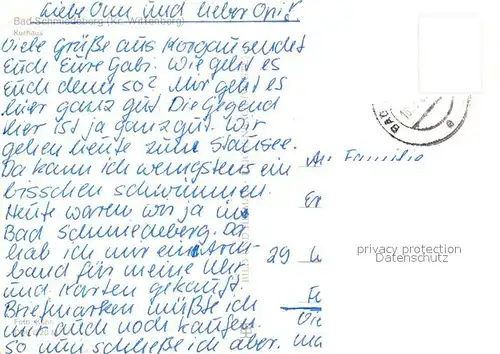 Liebe Omi und lieber Opi!
Bad Schmiedeberg (Kr. Wittenberg)
Kurhaus
Viele Grüße aus Morgau sendet
Euch Eure Gabi. Wie geht es
Euch denn so? Mir geht es
hier ganz gut. Die Gegend
hier ist ja ganz gut. Wir
gehen heute zum Stausee.
Da kann ich wenigstens ein
bisschen schwimmen.
Heute waren wir ja in
Bad Schmiedeberg. Da
hab ich mir ein Arm-
band für meine Uhr
und Karten gekauft.
Briefmarken müßte ich
mir auch noch kaufen.
So nun schließe ich aber.
BAD
An Familie
29
privacy protection
Datenschutz